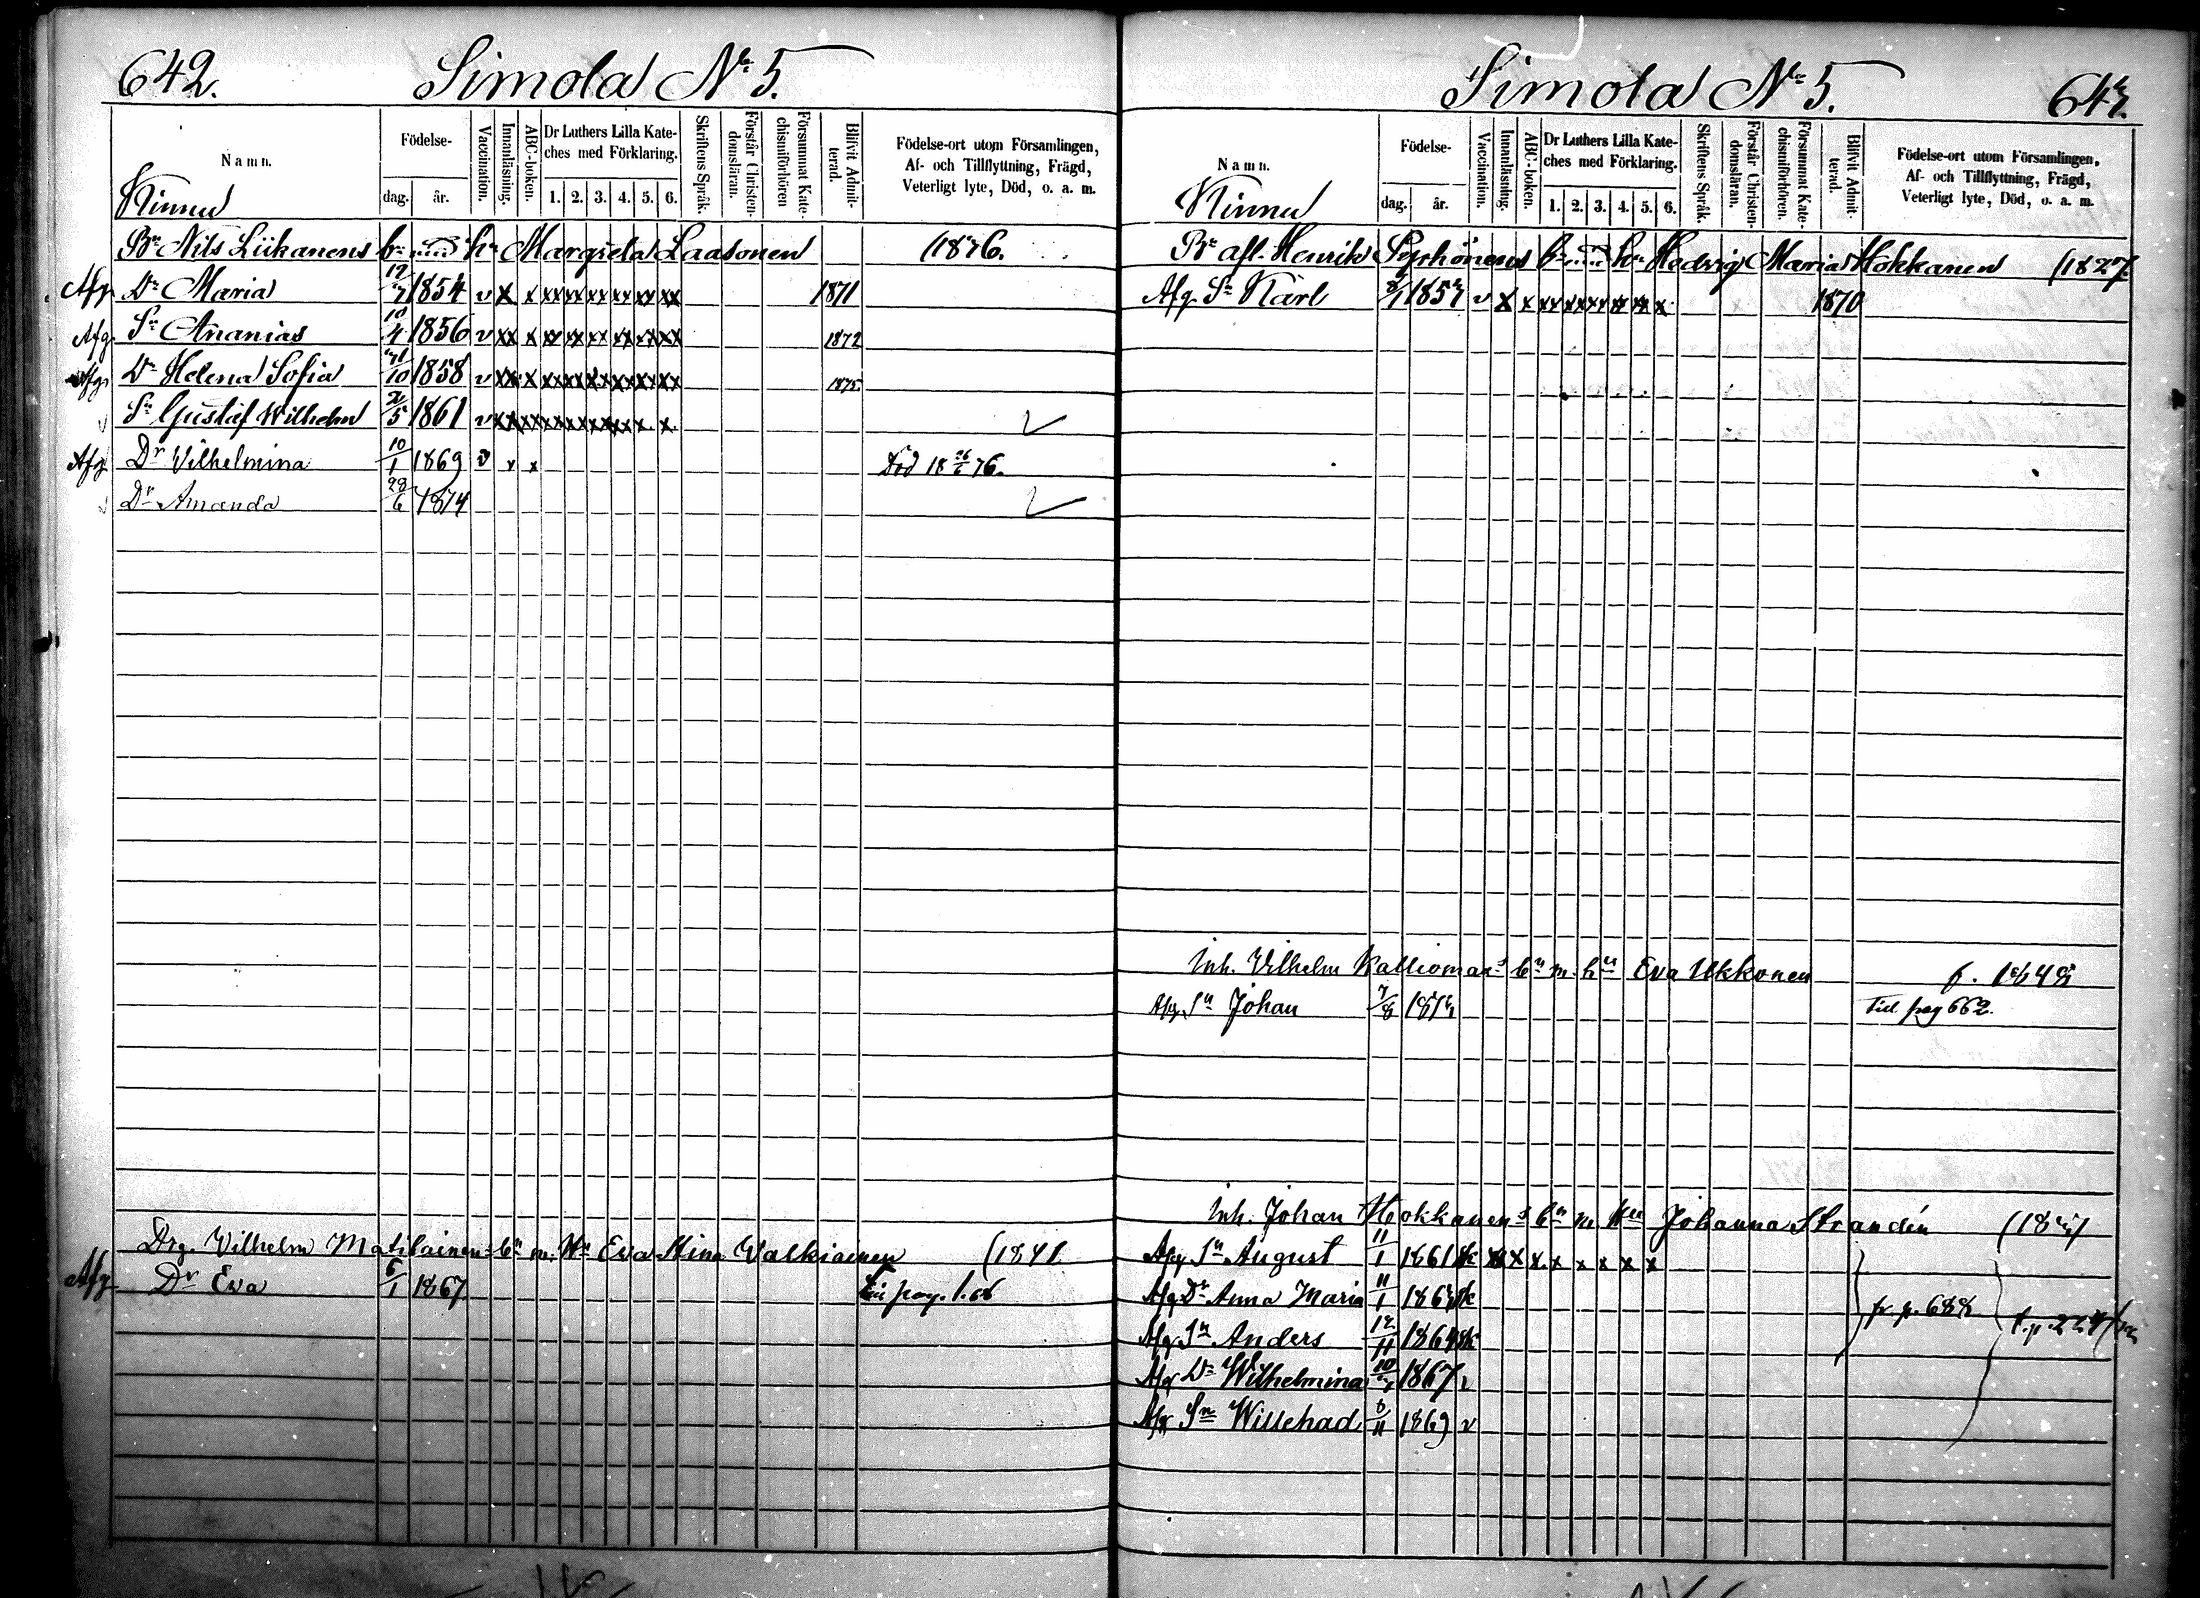 642.
Simola No 5.
Namn.
Födelse-
dag.
år.
Vaccination.
Innanläsning.
ABC-boken.
Dr Luthers Lilla Kate-
ches med Förklaring.
1. 2. 3. 4. 5. 6.
Skriftens Språk.
Förstår Christen-
domsläran.
Försummat Kate-
chismiförhören
Blifvit Admit-
terad.
Födelse-ort utom Församlingen,
Af- och Tillflyttning, Frägd,
Veterligt lyte, Död, o. a. m.
Kinnu
Bn Nils Liikanens bn m hu Margreta Laasonen
Afg. Dr Maria 1854 v x x xx xx xx xx xx xx 1871
Afg. Sn Ananias 10/4 1856 v xx x xx xx xx xx xx xx 1872
Afg. Dr Helena Sofia 1858 v xx x xx xx xx xx xx xx 1875
v Sn Gustaf Wilhelm 2/5 1861 v
Afg. Dr Vilhelmina 10/1 1869 v x x Död 18 26/6 76.
v Dr Amanda 28/6 1874
Drg. Vilhelm Matilainens bn m. Hu Eva Stina Valkiainen (1841.
Afg Dr Eva 1867
Simola No 5.
643.
Namn.
Födelse-
dag.
år.
Vaccination.
Innanläsning.
ABC-boken.
Dr Luthers Lilla Kate-
ches med Förklaring.
1. 2. 3. 4. 5. 6.
Skriftens Språk.
Förstår Christen-
domsläran.
Försummat Kate-
chismiförhören.
Blifvit Admit-
terad.
Födelse-ort utom Församlingen,
Af- och Tillflyttning, Frägd,
Veterligt lyte, Död, o. a. m.
Kinnu
Bn afl. Henrik bn m hu Hedvig Maria Hokkanen (1827.
Afg. Sn Karl v x x xx xx xx xx xx x 1870
Inh. Vilhelm Kalliomaas bn m. hu Eva Ukkonen
Afg. Sn Johan 7/8 Till pag 662.
Inh. Johan Hokkanens bn m. hu Johanna Strandén
Afg. Sn August 11/1 1861 x x x x x x x
Afg. Dr Anna Maria 11/1
Afg. Sn Anders 12/11 1864
Afg Dr Wilhelmina 1867 v
Afg Sn Willehad 8/11 1869 v